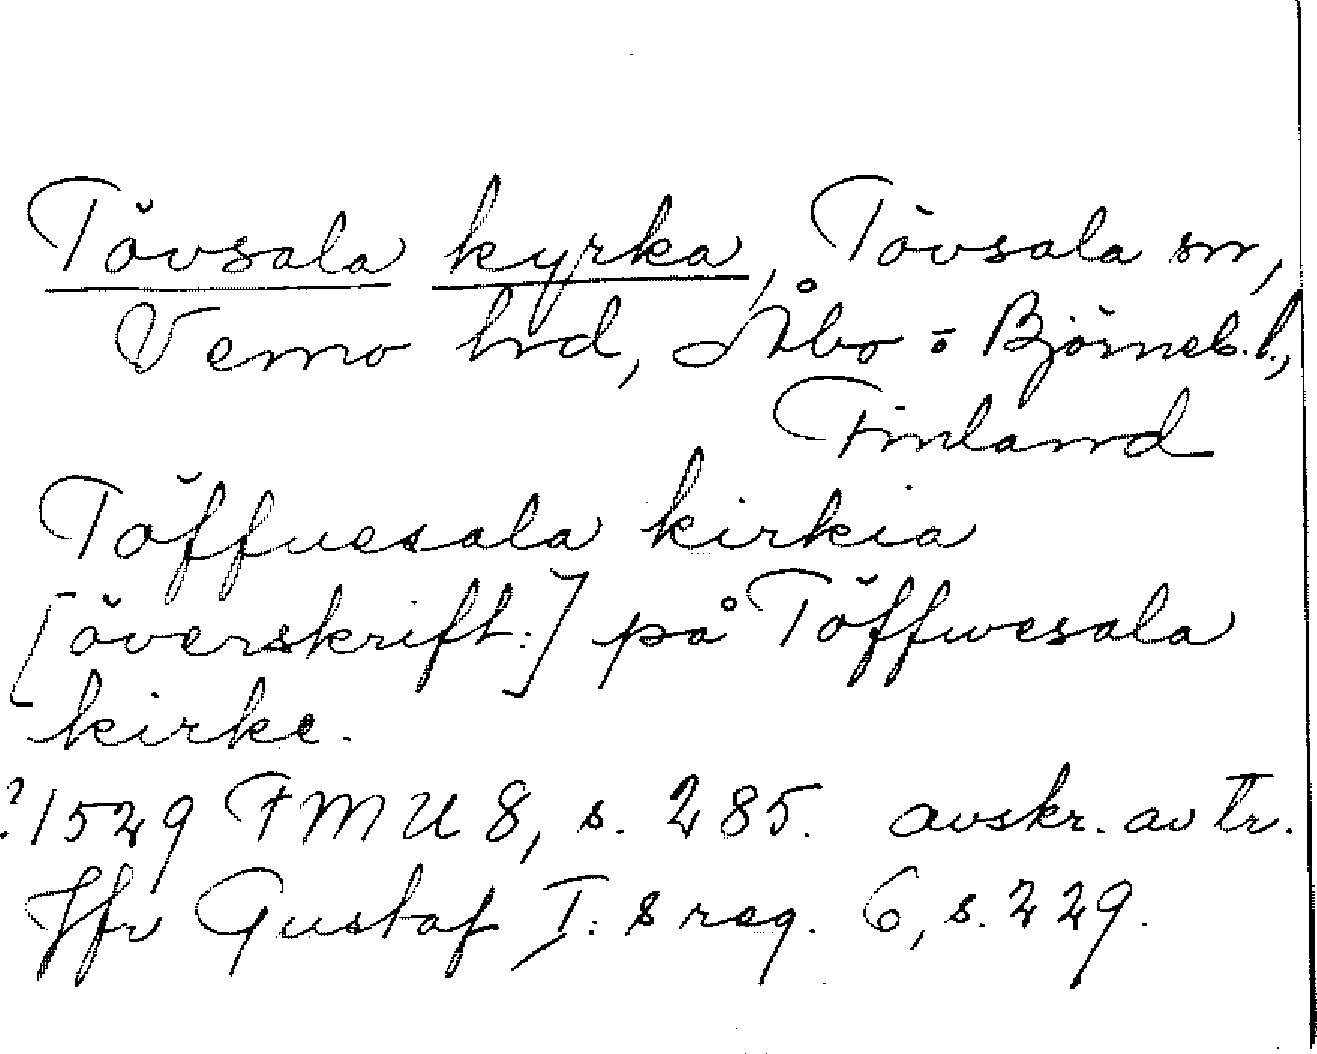 Tövsala kyrka, Tövsala sn,
Vemo hrd, Åbo o Björneb. l.,
Finland
Töffuesala kirkia
[överskrift:] på Töffwesala
kirke.
?1529 FMU 8, s. 285. avskr. av tr.
Jfr Gustaf I:s reg. 6, s. 229.